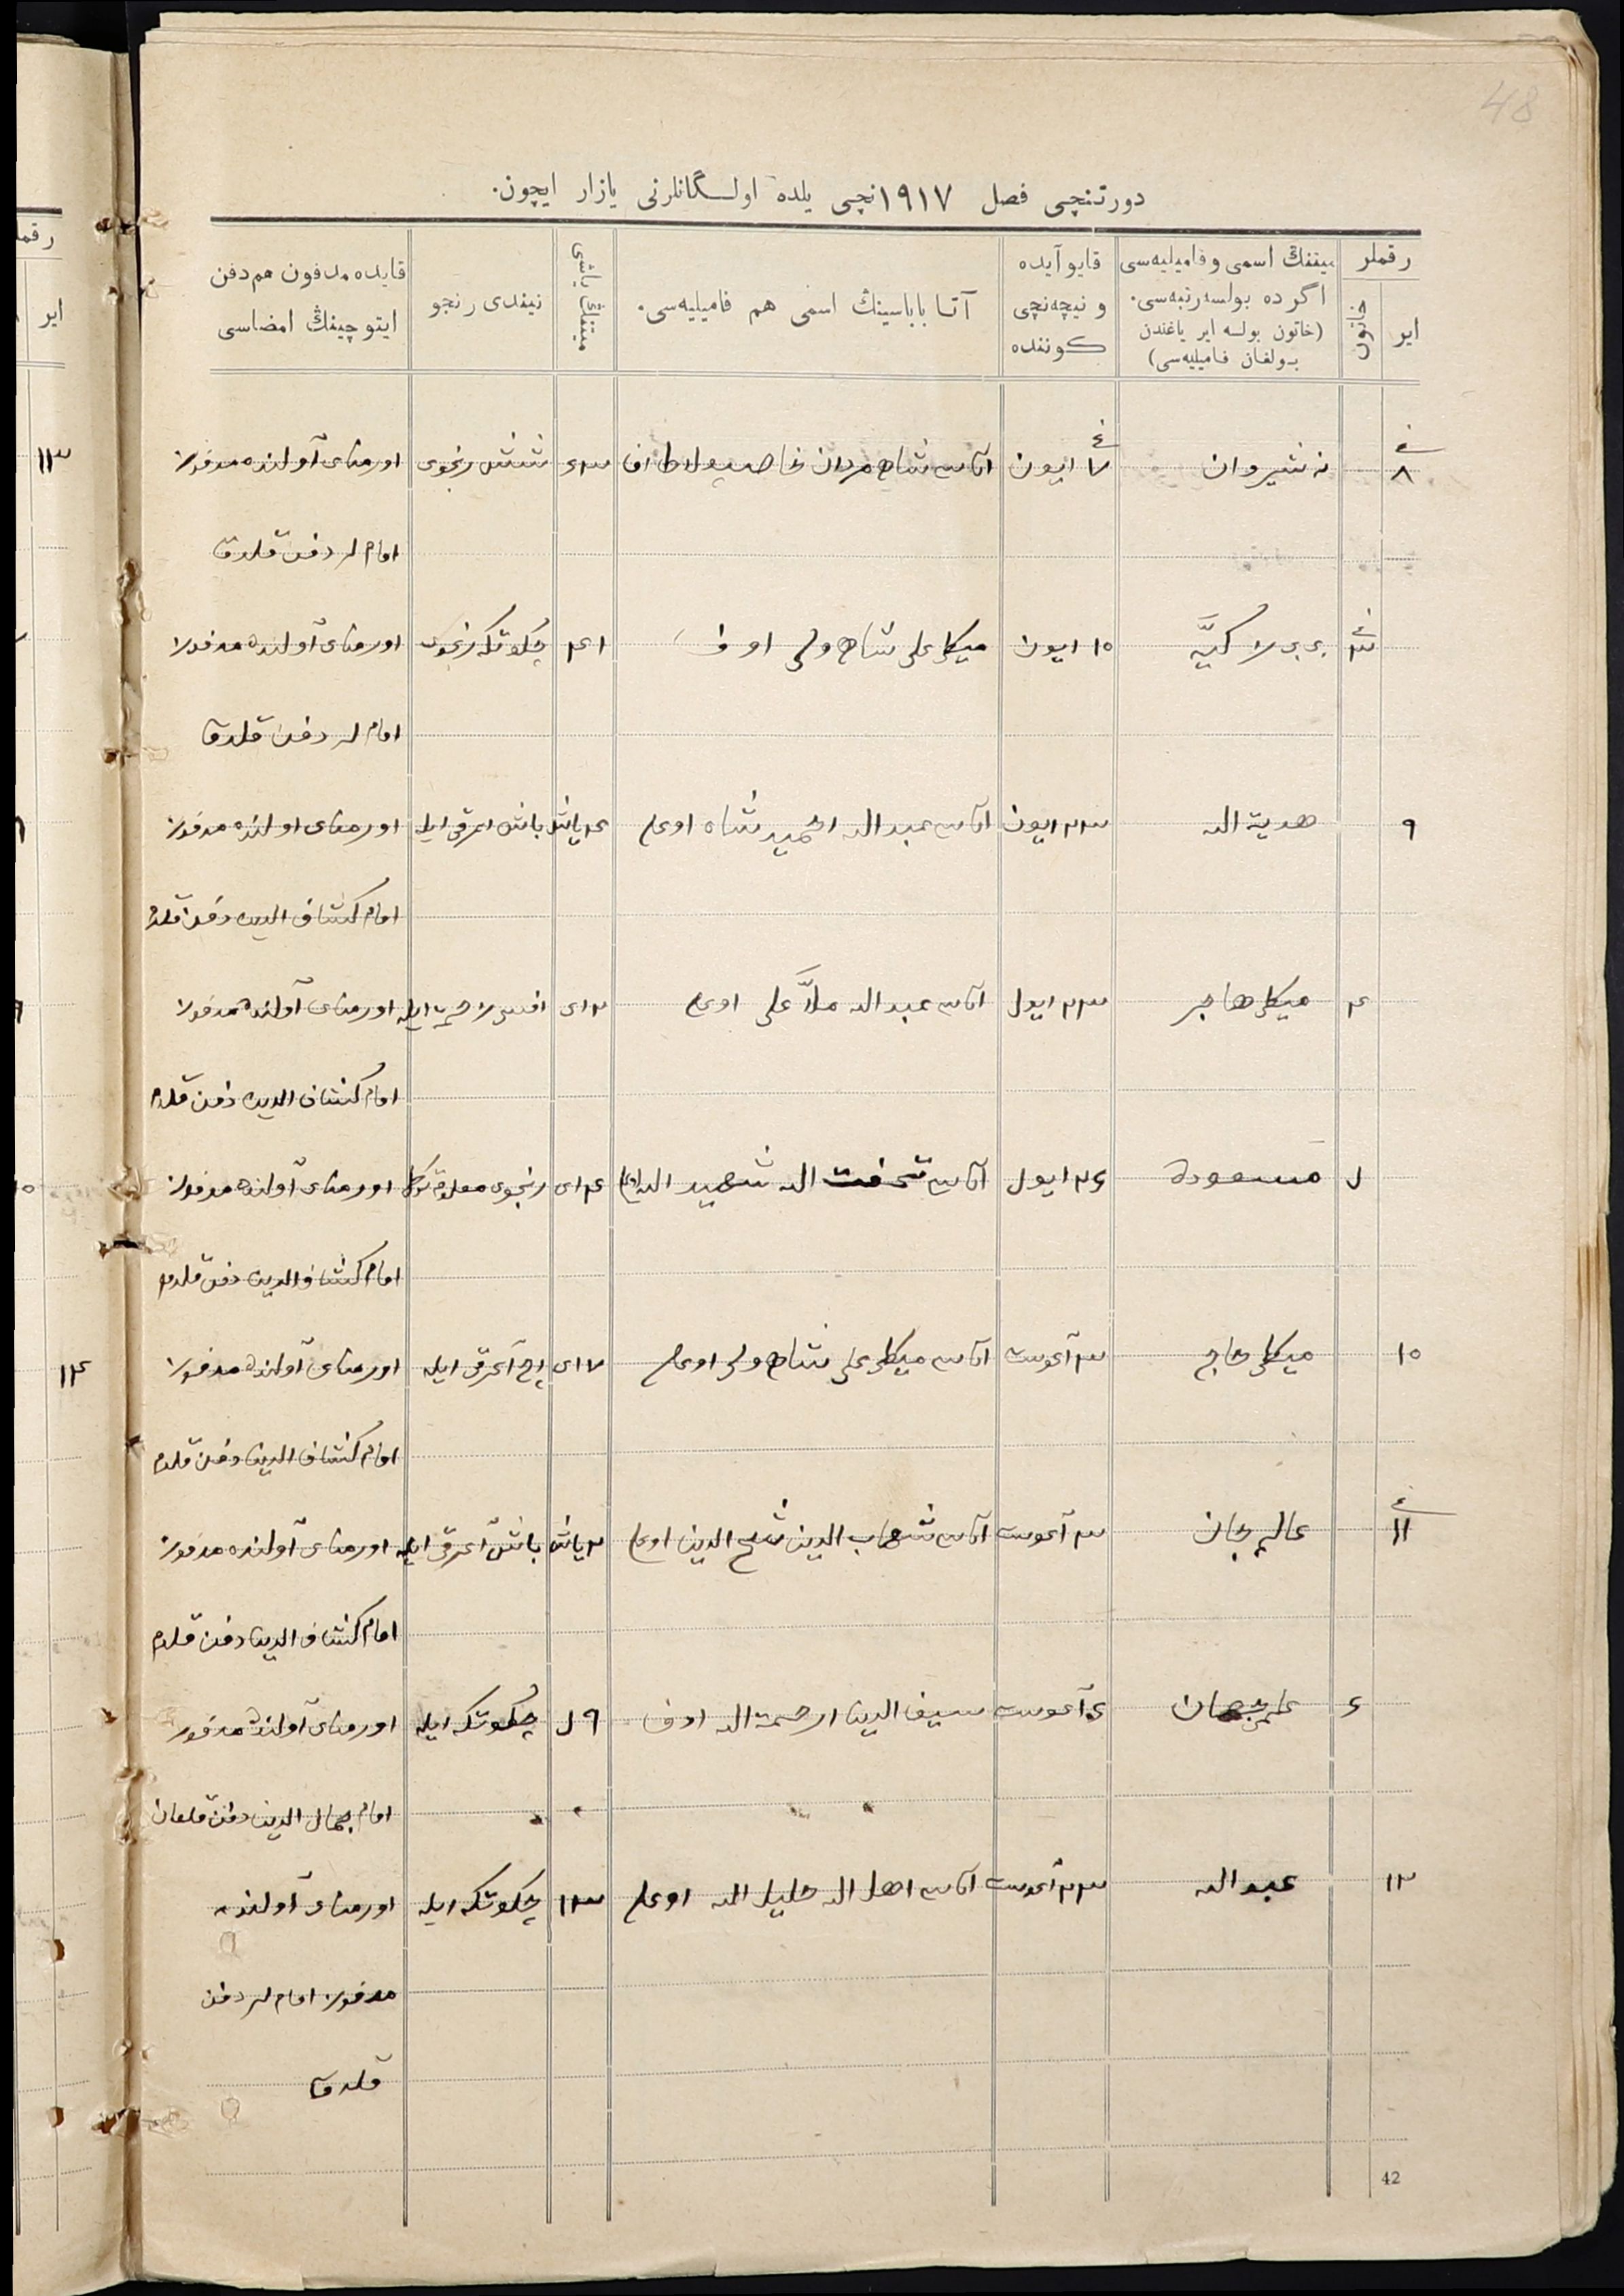 48
دورتنچی فصل ۱۹۱۷نچی یلده اولـگانلرنی یازار ایچون.
رقملر
ایر
خاتون
میتنڭ اسمی و فامیلیه‌سی
اگر ده بولسه رتبه‌سی.
(خاتون بولسه ایر یاغندن
بـولغان فـامیلیه‌سی)
قایو آیده
و نیچه‌نچی
کوننده
آتـا بابـاسینڭ اسمی هم فامیلیه‌سی.
میتنڭ یاشی
نیندی رنجو
قایده مدفون هم دفن
ایتو چینڭ امضاسی
۸ نه شیروان ۷ ایون آتاسی شاه مردان شش رنجوی اورمنای آولنده مدفون
امام لر دفن قلدق
۳ ۱۵ ایون میکلی علی شاه ولی اوف چکوتکه رنجوی اورمنای آولنده مدفون
امام لر دفن قلدق
۹ هدیة الله ۲۳ ایون آتاسی عبد الله احمید شاه اوغلی ۴ یاش باش اغرقی ایله اورمنای اولنده مدفون
امام کشاف الدین دفن قلدم
۴ میکلی هاجر ۲۳ ایول آتاسی عبد الله ملا علی اوغلی ۲ ای اورمنای آولنده مدفون
امام کشاف الدین دفن قلدم
۵ مسعودة ۲۶ ایول آتاسی تحفت الله شهید الله ۴ ای رنجوی معلوم توگل اورمنای آولنده مدفون
امام کشاف الدین دفن قلدم
۱۰ میکلی حاج ۳ آغوست آتاسی میکلی علی شاه ولی اوغلی ۷ ای اچ آغرقی ایله اورمنای آولنده مدفون
امام کشاف الدین دفن قلدم
۱۱ عالم جان ۳ آغوست آتاسی شهاب الدین شیخ الدین اوغلی ۲ یاش باش آغرقی ایله اورمنای آولنده مدفون
امام کشاف الدین دفن قلدم
۶ علم جهان ۶ آغوست سیف الدین رحمة الله اوف چکوتکه ایله اورمنای آولنده مدفون
امام جمال الدین دفن قلغان
۱۲ عبد الله ۲۳ آغوست آتاسی اهل الله خلیل الله اوغلی چکوتکه ایله اورمنای آولنده
مدفون امام لر دفن
قلدق
42
رقملر
ایر
۱۳
۱۴